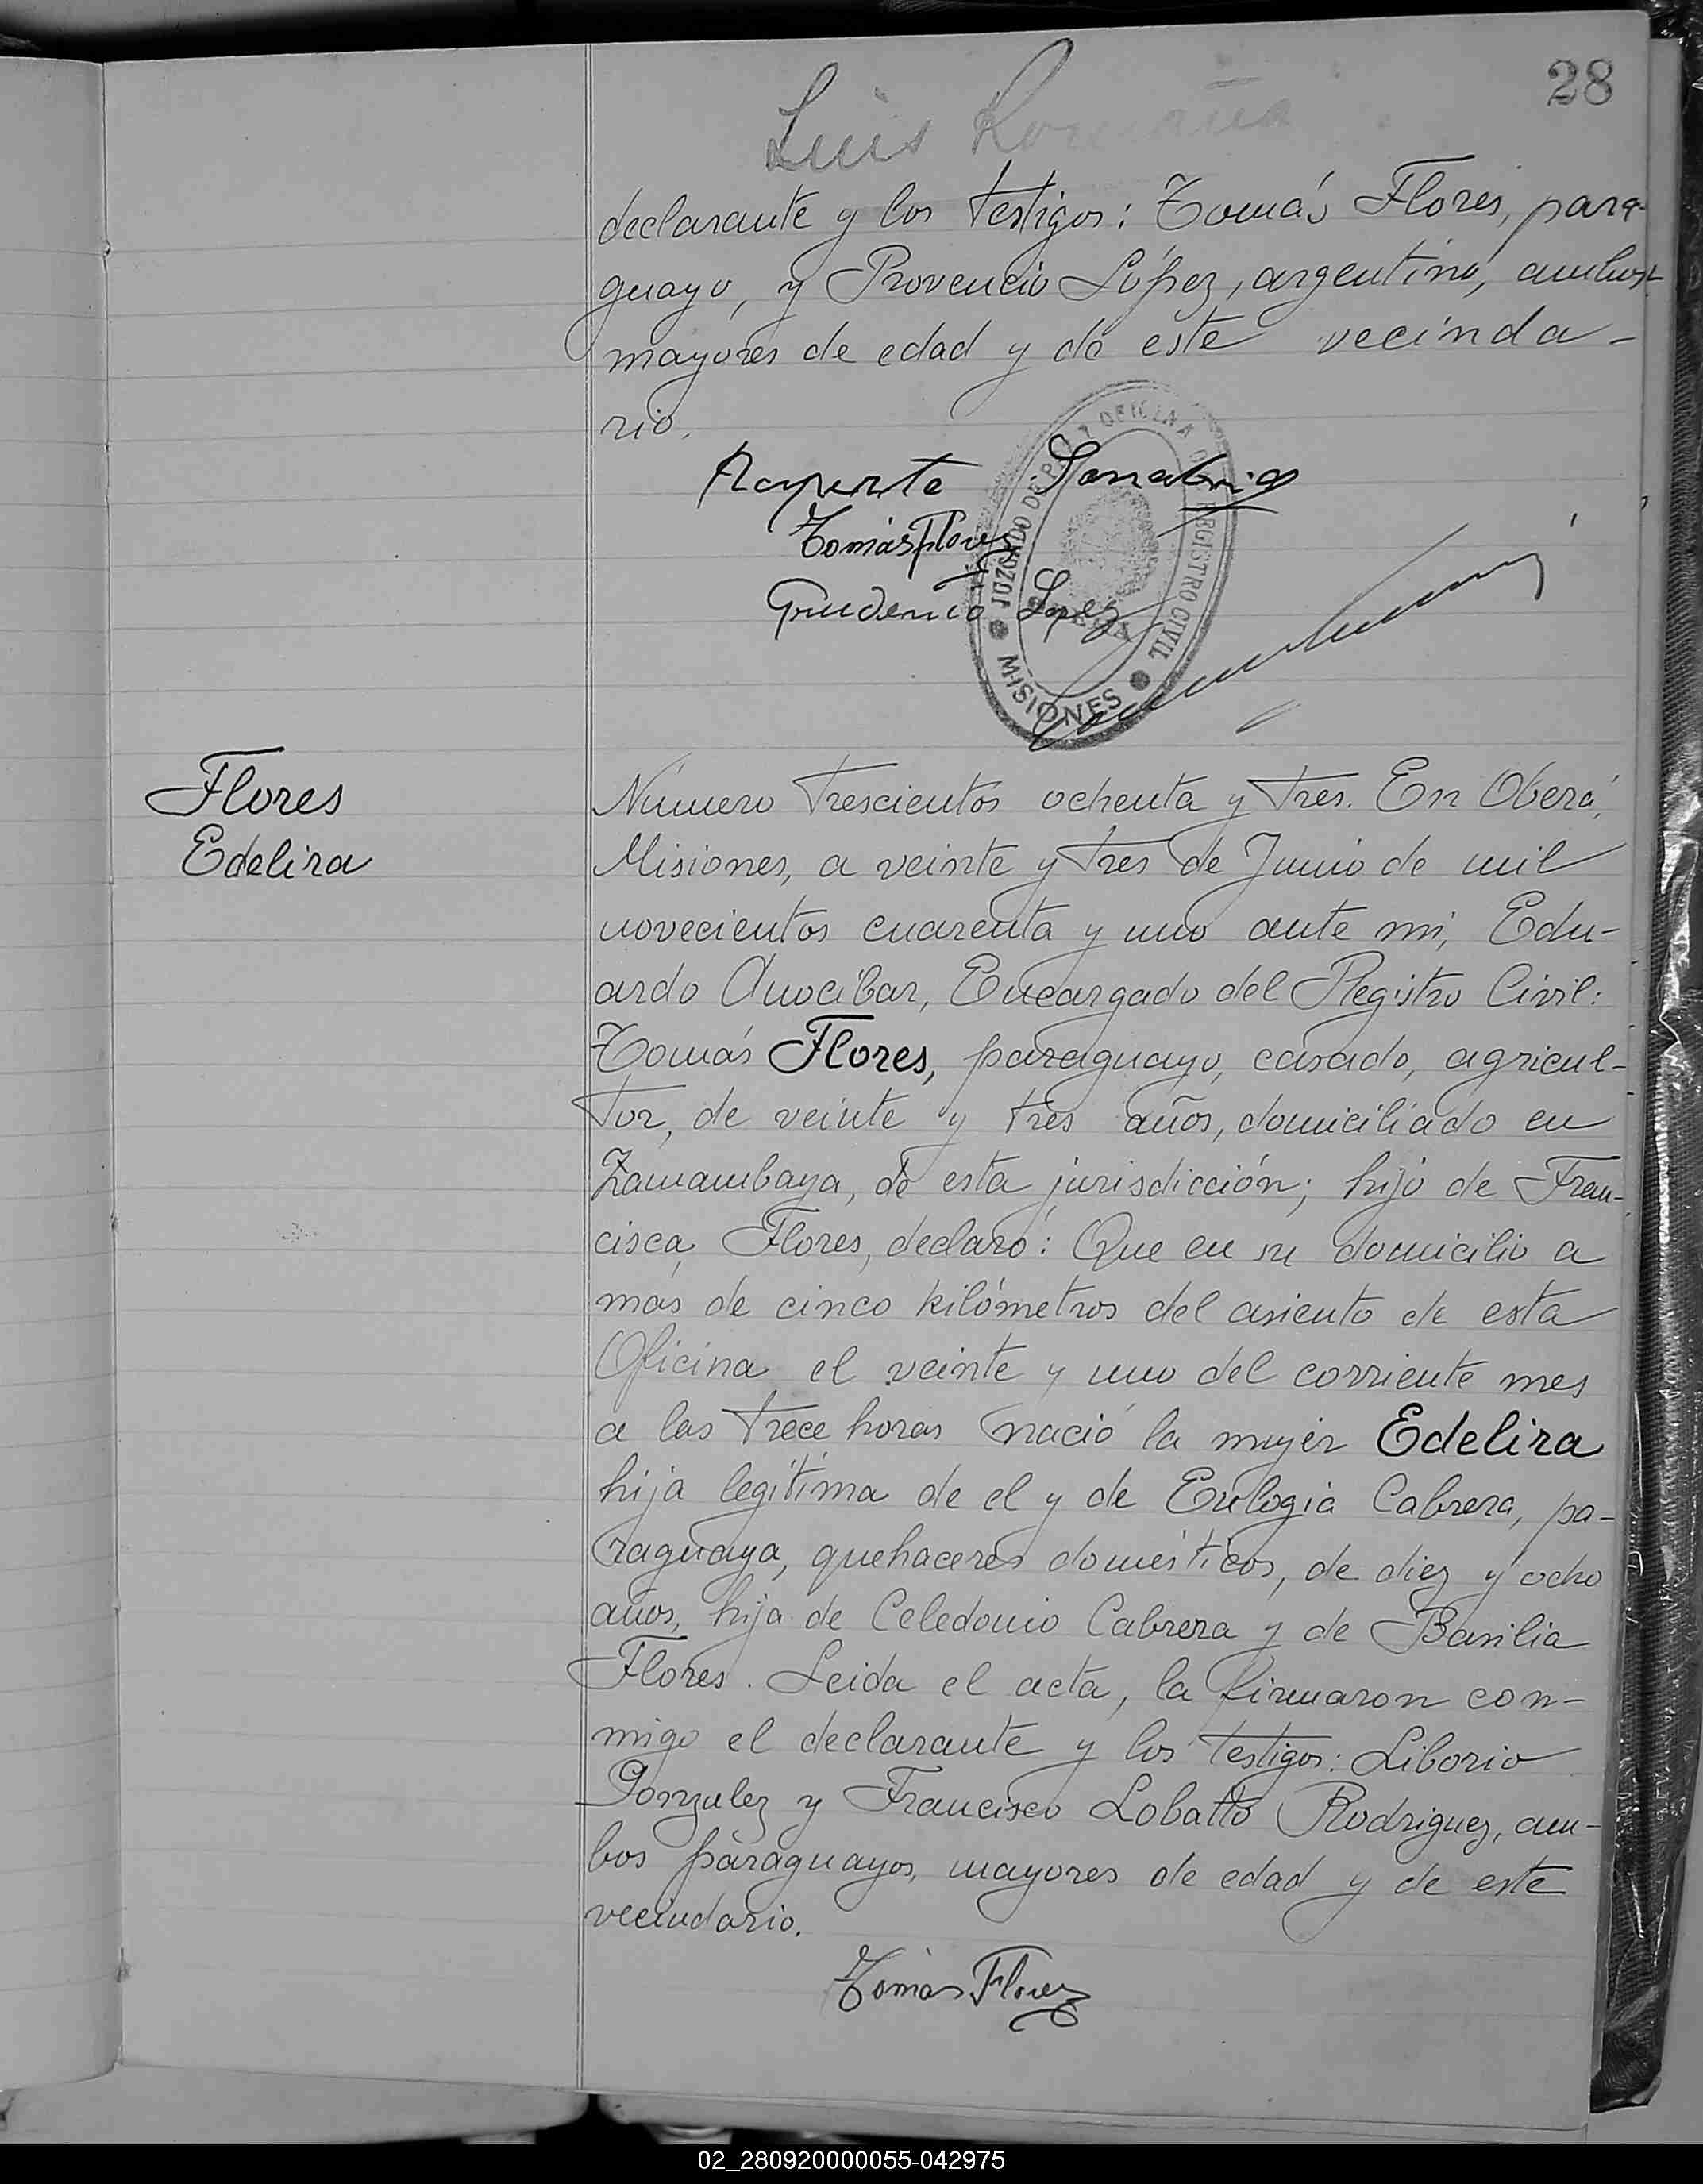 28
Luis Romaña
declarante y los testigos: Tomás Flores, para-
guayo, y Provencio López, argentino, ambos
mayores de edad y de este vecinda-
rio.
JUZGADO DE PAZ Y OFICINA DEL REGISTRO CIVIL
MISIONES
Ruperto Sanabria
Tomás Flores
Prudencio Lopez
Flores
Edelira
Número trescientos ochenta y tres. En Oberá,
Misiones, a veinte y tres de Junio de mil
novecientos cuarenta y uno ante mi, Edu-
ardo Anocibar, Encargado del Registro Civil:
Tomás Flores, paraguayo, casado, agricul-
tor, de veinte y tres años, domiciliado en
Zamambaya, de esta jurisdicción; hijo de Fran-
cisca Flores, declaró: Que en su domicilio a
más de cinco kilómetros del asiento de esta
Oficina el veinte y uno del corriente mes
a las trece horas nació la mujer Edelira
hija legítima de el y de Eulogia Cabrera, pa-
raguaya, quehaceres domésticos, de diez y ocho
años, hija de Celedonio Cabrera y de Basilia
Flores. Leida el acta, la firmaron con-
migo el declarante y los testigos: Liborio
Gonzalez y Francisco Lobatto Rodriguez, am-
bos paraguayos, mayores de edad y de este
vecindario.
Tomás Flores
02_280920000055-042975